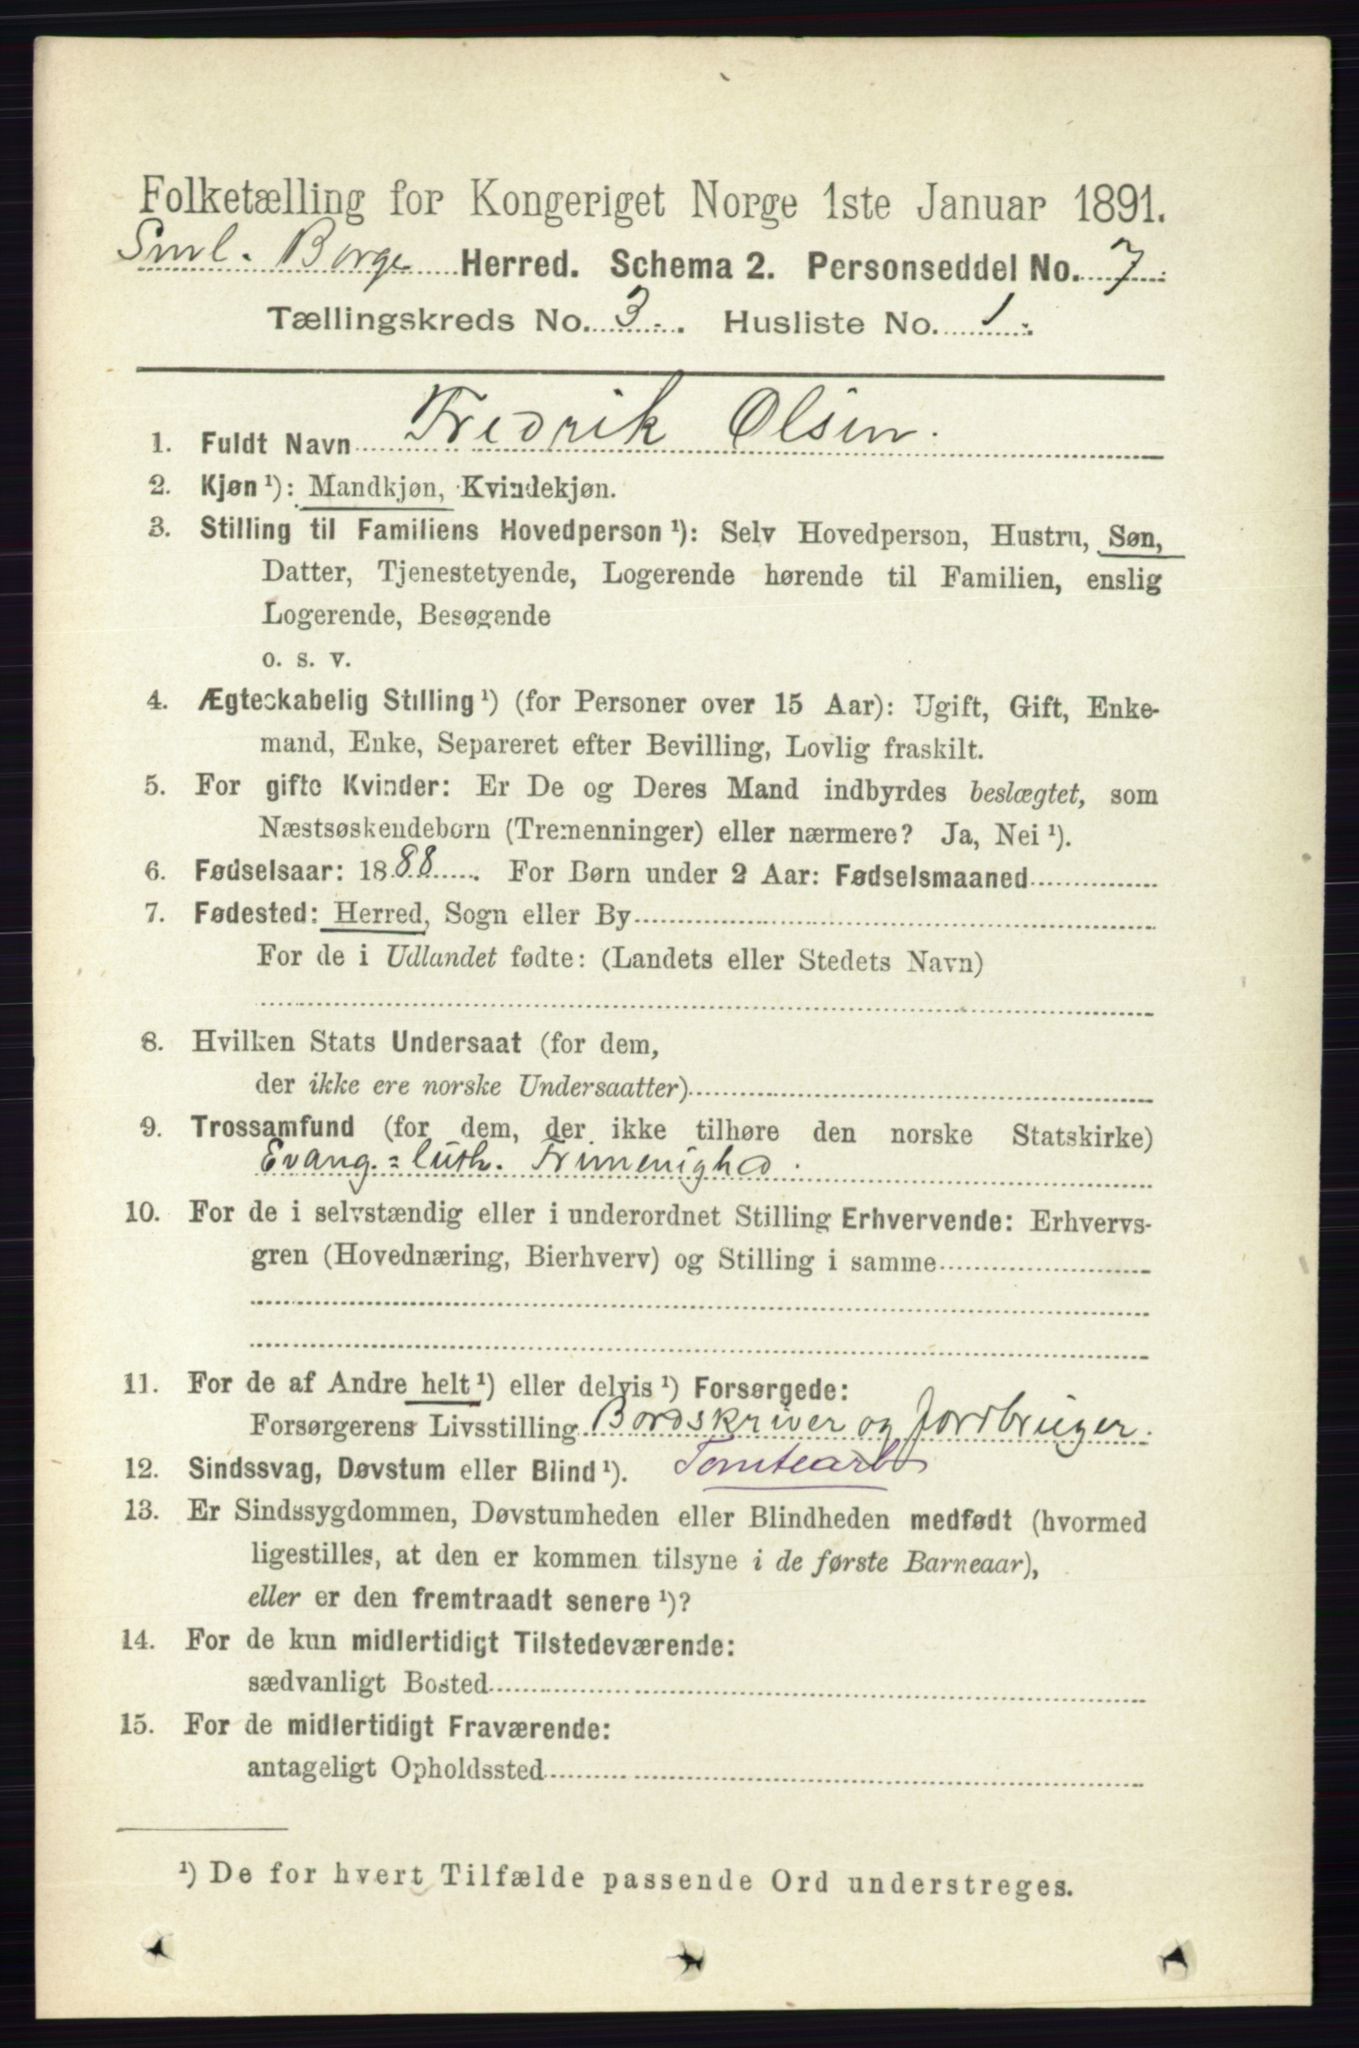 Folketælling for Kongeriget Norge 1ste Januar 1891.
Sml. Borge Herred. Schema 2. Personseddel No. 7.
Tællingskreds No. 3. Husliste No. 1.
1. Fuldt Navn Fredrik Olsen.
2. Kjøn ¹): Mandkjøn, Kvindekjøn.
3. Stilling til Familiens Hovedperson ¹): Selv Hovedperson, Hustru, Søn,
Datter, Tjenestetyende, Logerende hørende til Familien, enslig
Logerende, Besøgende
o. s. v.
4. Ægteskabelig Stilling ¹) (for Personer over 15 Aar): Ugift, Gift, Enke-
mand, Enke, Separeret efter Bevilling, Lovlig fraskilt.
5. For gifte Kvinder: Er De og Deres Mand indbyrdes beslægtet, som
Næstsøskendebørn (Tremenninger) eller nærmere? Ja, Nei ¹).
6. Fødselsaar: 1888. For Børn under 2 Aar: Fødselsmaaned
7. Fødested: Herred, Sogn eller By
For de i Udlandet fødte: (Landets eller Stedets Navn)
8. Hvilken Stats Undersaat (for dem,
der ikke ere norske Undersaatter)
9. Trossamfund (for dem, der ikke tilhøre den norske Statskirke)
Evang.=luth. Frimenighed.
10. For de i selvstændig eller i underordnet Stilling Erhvervende: Erhvervs-
gren (Hovednæring, Bierhverv) og Stilling i samme
11. For de af Andre helt ¹) eller delvis ¹) Forsørgede:
Forsørgerens Livsstilling Bordskriver og Jordbruger.
12. Sindssvag, Døvstum eller Blind ¹). Tomtearb
13. Er Sindssygdommen, Døvstumheden eller Blindheden medfødt (hvormed
ligestilles, at den er kommen tilsyne i de første Barneaar),
eller er den fremtraadt senere ¹)?
14. For de kun midlertidigt Tilstedeværende:
sædvanligt Bosted
15. For de midlertidigt Fraværende:
antageligt Opholdssted
¹) De for hvert Tilfælde passende Ord understreges.